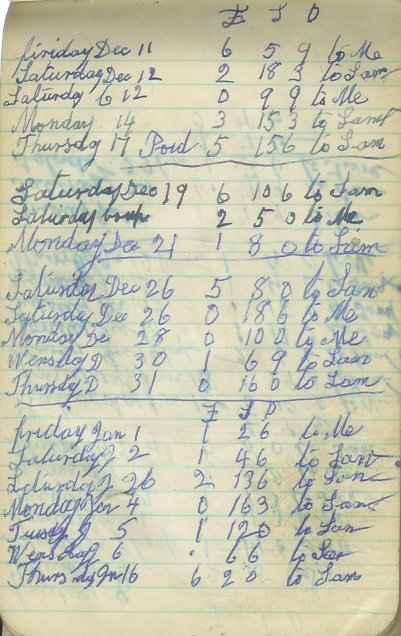 £ S D
Friday Dec 11 6 5 9 to Me
Saturday Dec 12 2 18 3 to Sam
Saturday 12 0 9 9 to Me
Monday 14 3 15 3 to Sam
Thursday 17 Paid 5 15 6 to Sam
Saturday Dec 19 6 10 6 to Sam
Saturday 2 5 0 to Me
Monday Dec 21 1 8 0 to Sam
Saturday Dec 26 5 8 0 to Sam
Saturday Dec 26 0 18 6 to Me
Monday De 28 0 10 0 to Me
Wensday D 30 1 6 9 to Sam
Thursday D 31 0 16 0 to Sam
£ S D
Friday Jan 1 1 2 6 to Me
Saturday J 2 1 4 6 to Sam
Saturday 2 13 6 to Sam
Monday Jan 4 0 16 3 to Sam
Tuesday J 5 1 12 0 to Sam
Wensday J 6 6 6 to Sam
Thursday 6 2 0 to Sam